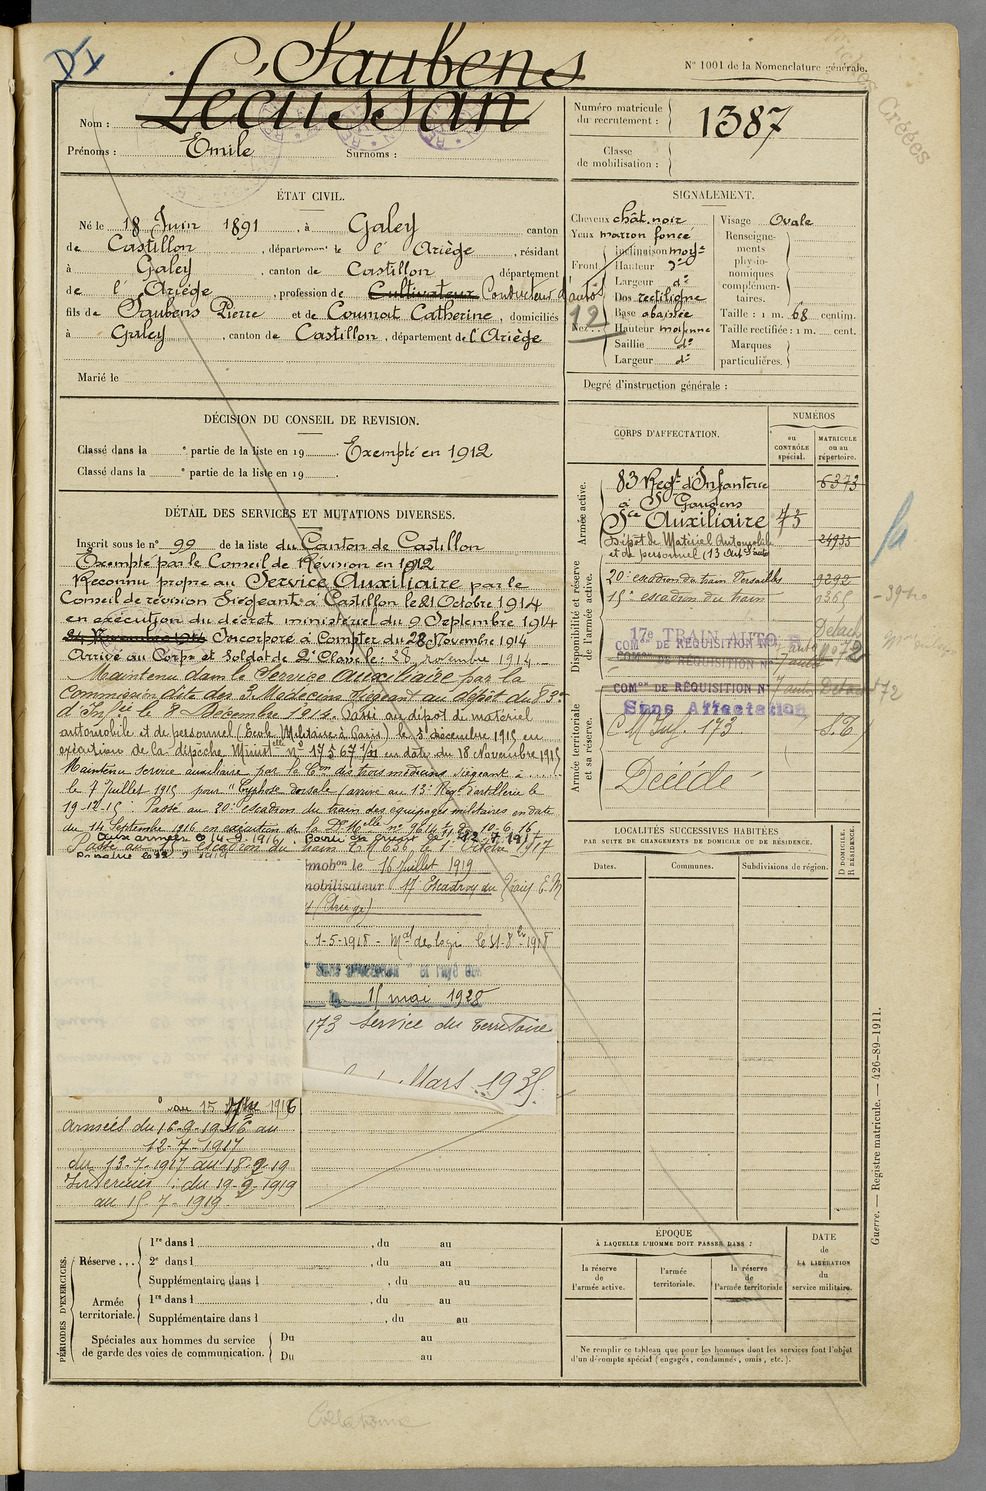 N° 1001 de la Nomenclature générale.
Saubens
Lecussan
Nom :
Prénoms : Emile Surnoms :
Numéro matricule du recrutement : 1387
Classe de mobilisation :
ÉTAT CIVIL.
Né le 18 Juin 1891, à Galey canton
de Castillon, département de l'Ariège, résidant
à Galey, canton de Castillon département
de l'Ariège, profession de Cultivateur Conducteur d'autos
fils de Saubens Pierre et de Coumat Catherine, domiciliés
à Galey, canton de Castillon, département de l'Ariège
Marié le
SIGNALEMENT.
Cheveux chât. noir
Yeux marron foncé
Front Inclinaison moyne
Hauteur do
Largeur do
Nez Dos rectiligne
Base abaissée
Hauteur moyenne
Saillie do
Largeur do
12
Visage Ovale
Renseignements physionomiques complémentaires.
Taille : 1 m. 68 centim.
Taille rectifiée : 1 m. cent.
Marques particulières.
Degré d'instruction générale :
DÉCISION DU CONSEIL DE REVISION.
Classé dans la e partie de la liste en 19 Exempté en 1912
Classé dans la e partie de la liste en 19
DÉTAIL DES SERVICES ET MUTATIONS DIVERSES.
Inscrit sous le n° 99 de la liste du Canton de Castillon
Exempté par le Conseil de Révision en 1912
Reconnu propre au Service Auxiliaire par le
Conseil de révision Siégeant à Castillon le 21 Octobre 1914
en exécution du décret ministériel du 9 Septembre 1914
24 Novembre 1914 Incorporé à Compter du 28 Novembre 1914
Arrivé au Corps et Soldat de 2e Classe le : 28 novembre 1914
Maintenu dans le Service auxiliaire par la
Commission dite des 3 Médecins siégeant au dépôt du 83e
d'Infie le 8 Décembre 1914. Passé au dépôt de matériel
automobile et de personnel (Ecole Militaire à Paris) le 3 décembre 1915 en
exécution de la dépêche Ministelle n° 17567 1/11 en date du 18 Novembre 1915
Maintenu service auxiliaire par la Con des trois médecins siégeant à ......
le 7 Juillet 1915 pour "Cyphose dorsale (arrivé au 13e Regt d'artillerie le
19-12-15. Passé au 20e escadron du train des équipages militaires en date
du 14 Septembre 1916 en exécution de la
Passé au escadron du train le 1 Octobre 1917
le 16 Juillet 1919
mobilisateur 17 Escadron du Train
(Ariège)
1-5-1918 - Mal des logis le 21-8bre 1918
le 15 mai 1928
173 Service du Territoire
Mars 1935.
au 15 7bre 1916
armées du 16-9-1916 au
12-7-1917
du 13-7-1917 au 18-9-19
Intérieur : du 19-9-1919
au 15-7-1919.
CORPS D'AFFECTATION.
NUMÉROS
au CONTRÔLE spécial.
MATRICULE ou au répertoire.
Armée active.
83 Regt d'Infanterie 6373
à St Gaudens
Sce Auxiliaire 75
Dépôt de Matériel Automobile 24935
et de personnel
Disponibilité et réserve de l'armée active.
20e escadron du train Versailles 9292
15e escadron du train
17e TRAIN AUTO
COMon DE RÉQUISITION N°
COMon DE RÉQUISITION N° 7 auto
COMon DE RÉQUISITION N° 7 auto 72
Sans Affectation
Armée territoriale et sa réserve.
173
Décédé
LOCALITÉS SUCCESSIVES HABITÉES
PAR SUITE DE CHANGEMENTS DE DOMICILE OU DE RÉSIDENCE.
Dates. Communes. Subdivisions de région. D DOMICILE. R RÉSIDENCE.
PÉRIODES D'EXERCICES.
Réserve ... 1re dans l , du au
2e dans l , du au
Supplémentaire dans l , du au
Armée territoriale. 1re dans l , du au
Supplémentaire dans l , du au
Spéciales aux hommes du service de garde des voies de communication. Du au
Du au
ÉPOQUE
À LAQUELLE L'HOMME DOIT PASSER DANS :
la réserve de l'armée active.
l'armée territoriale.
la réserve de l'armée territoriale
DATE de LA LIBÉRATION du service militaire.
Ne remplir ce tableau que pour les hommes dont les services font l'objet
d'un décompte spécial (engagés, condamnés, omis, etc.).
Guerre. — Registre matricule. — 426-89-1911.